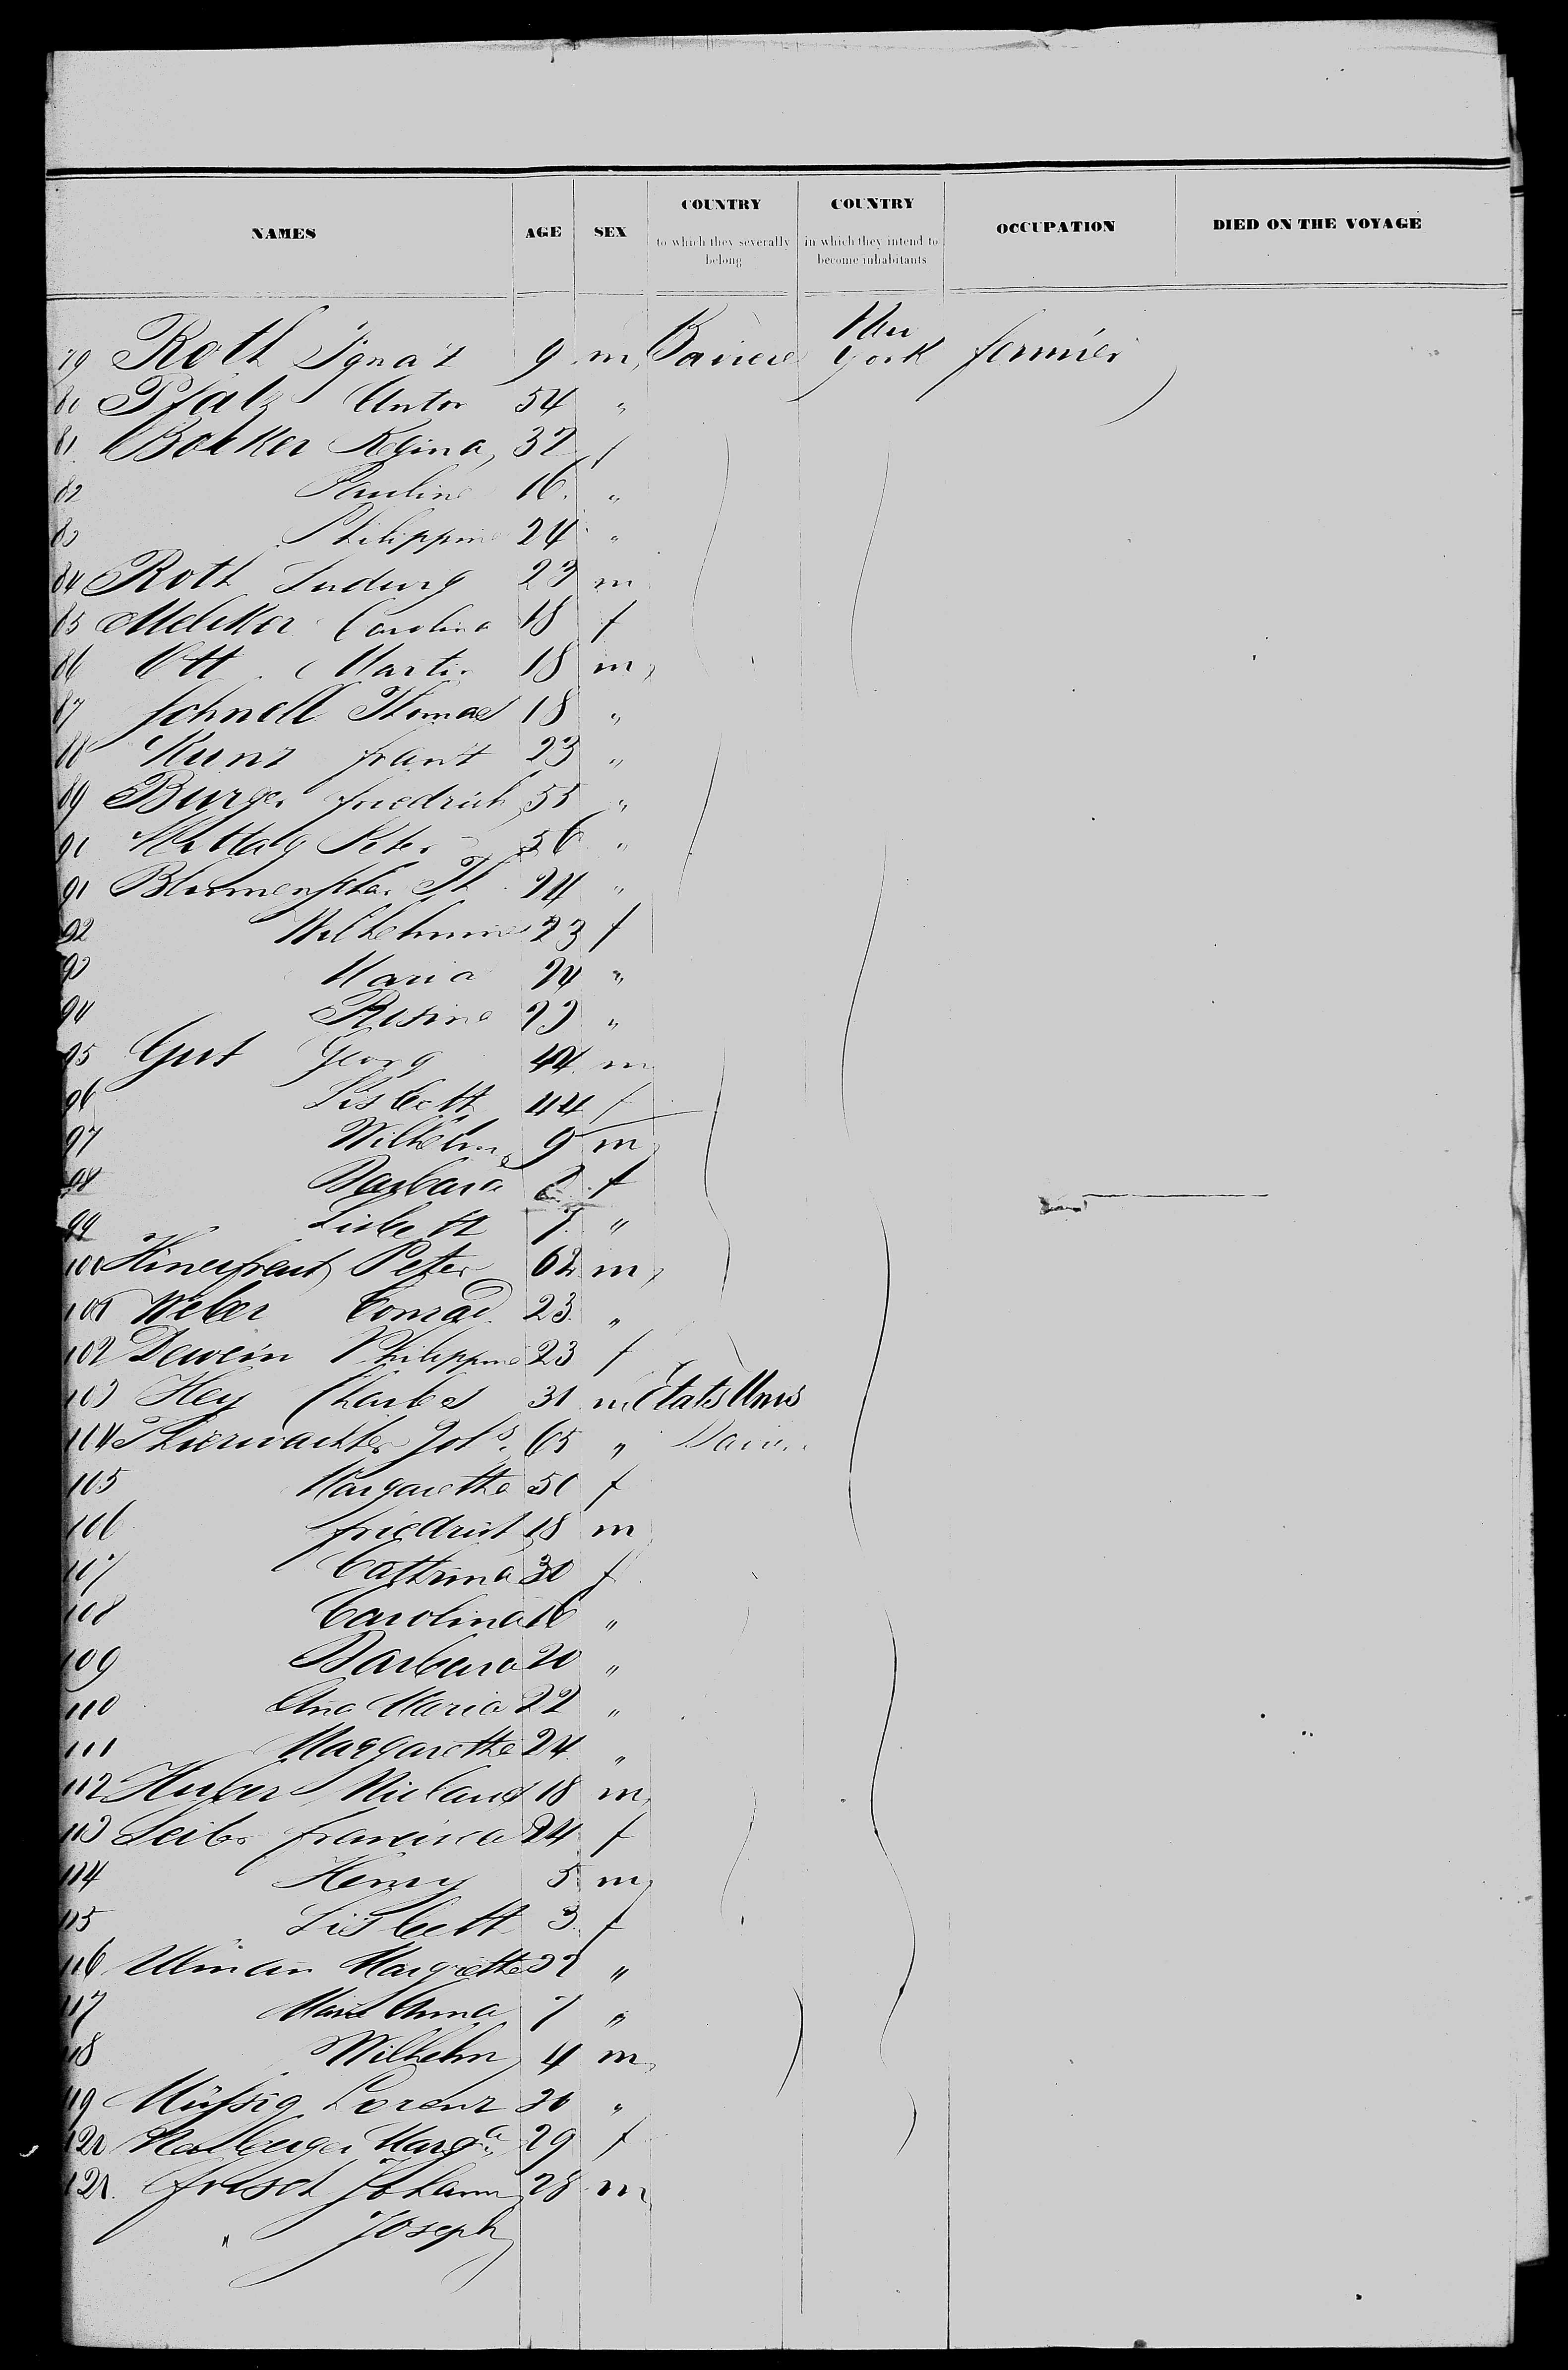 NAMES AGE SEX COUNTRY to which they severally belong COUNTRY in which they intend to become inhabitants OCCUPATION DIED ON THE VOYAGE
79 Roth Ignaz 9 m Baviere New York fermier
80 Pfalz Anton 54 "
81 Boeker Regina 32 f
82 Pauline 16 "
83 Philippine 24 "
84 Roth Ludwig 23 m
85 Melcker Carolina 18 f
86 Ott Martin 18 m
87 Schnell Thomas 18 "
88 Kunz frantz 23 "
89 Burger friedrich 55 "
90 Peter 56 "
91 Th 24 "
92 Wilhelmine 23 f
93 Maria 24 "
94 Rosine 23 "
95 Gut Georg 44 m
96 Lisbett 44 f
97 Wilhelm 9 m
98 Barbara 8 f
99 Lisbett 7 "
100 Peter 62 m
101 Weber Conrad 23 "
102 Dewein Philippine 23 f
103 Hey Charles 31 m Etats Unis
104 Thierwachter Joh 65 " Bavie
105 Margarethe 50 f
106 friedrich 18 m
107 Cathrina 30 f
108 Carolina 16 "
109 Barbara 20 "
110 Aña Maria 22 "
111 Margarethe 24 "
112 Huber 18 m
113 Leiber francisca 24 f
114 Henry 5 m
115 Lisbett 3 f
116 Ulman Margrethe 32 "
117 Maria Anna 7 "
118 Wilhelm 4 m
119 Müssig Lorenz 30 "
120 29 f
121 frisch Johann 28 m
" Joseph